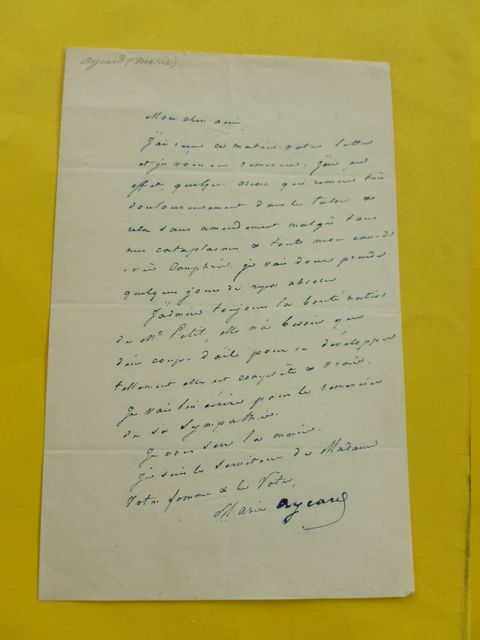 aycard (marie)
Mon cher ami,
J'ai reçu ce matin votre lettre
et je vous en remercie. J'ai, en
effet, quelque chose qui remue très
douloureusement dans le talon &
cela sans amendement malgré tous
mes cataplasmes & toute mon eau-de
-vie camphrée. je vais donc prendre
quelques jours de repos absolu.
J'admire toujours la bonté native
de Mr Petit, elle n'a besoin que
d'un coup d'aile pour se développer
tellement elle est complète & vraie.
Je vais lui écrire pour le remercier
de sa sympathie.
Je vous serre la main.
Je suis le serviteur de Madame
votre femme & le Votre,
Marie Aycard